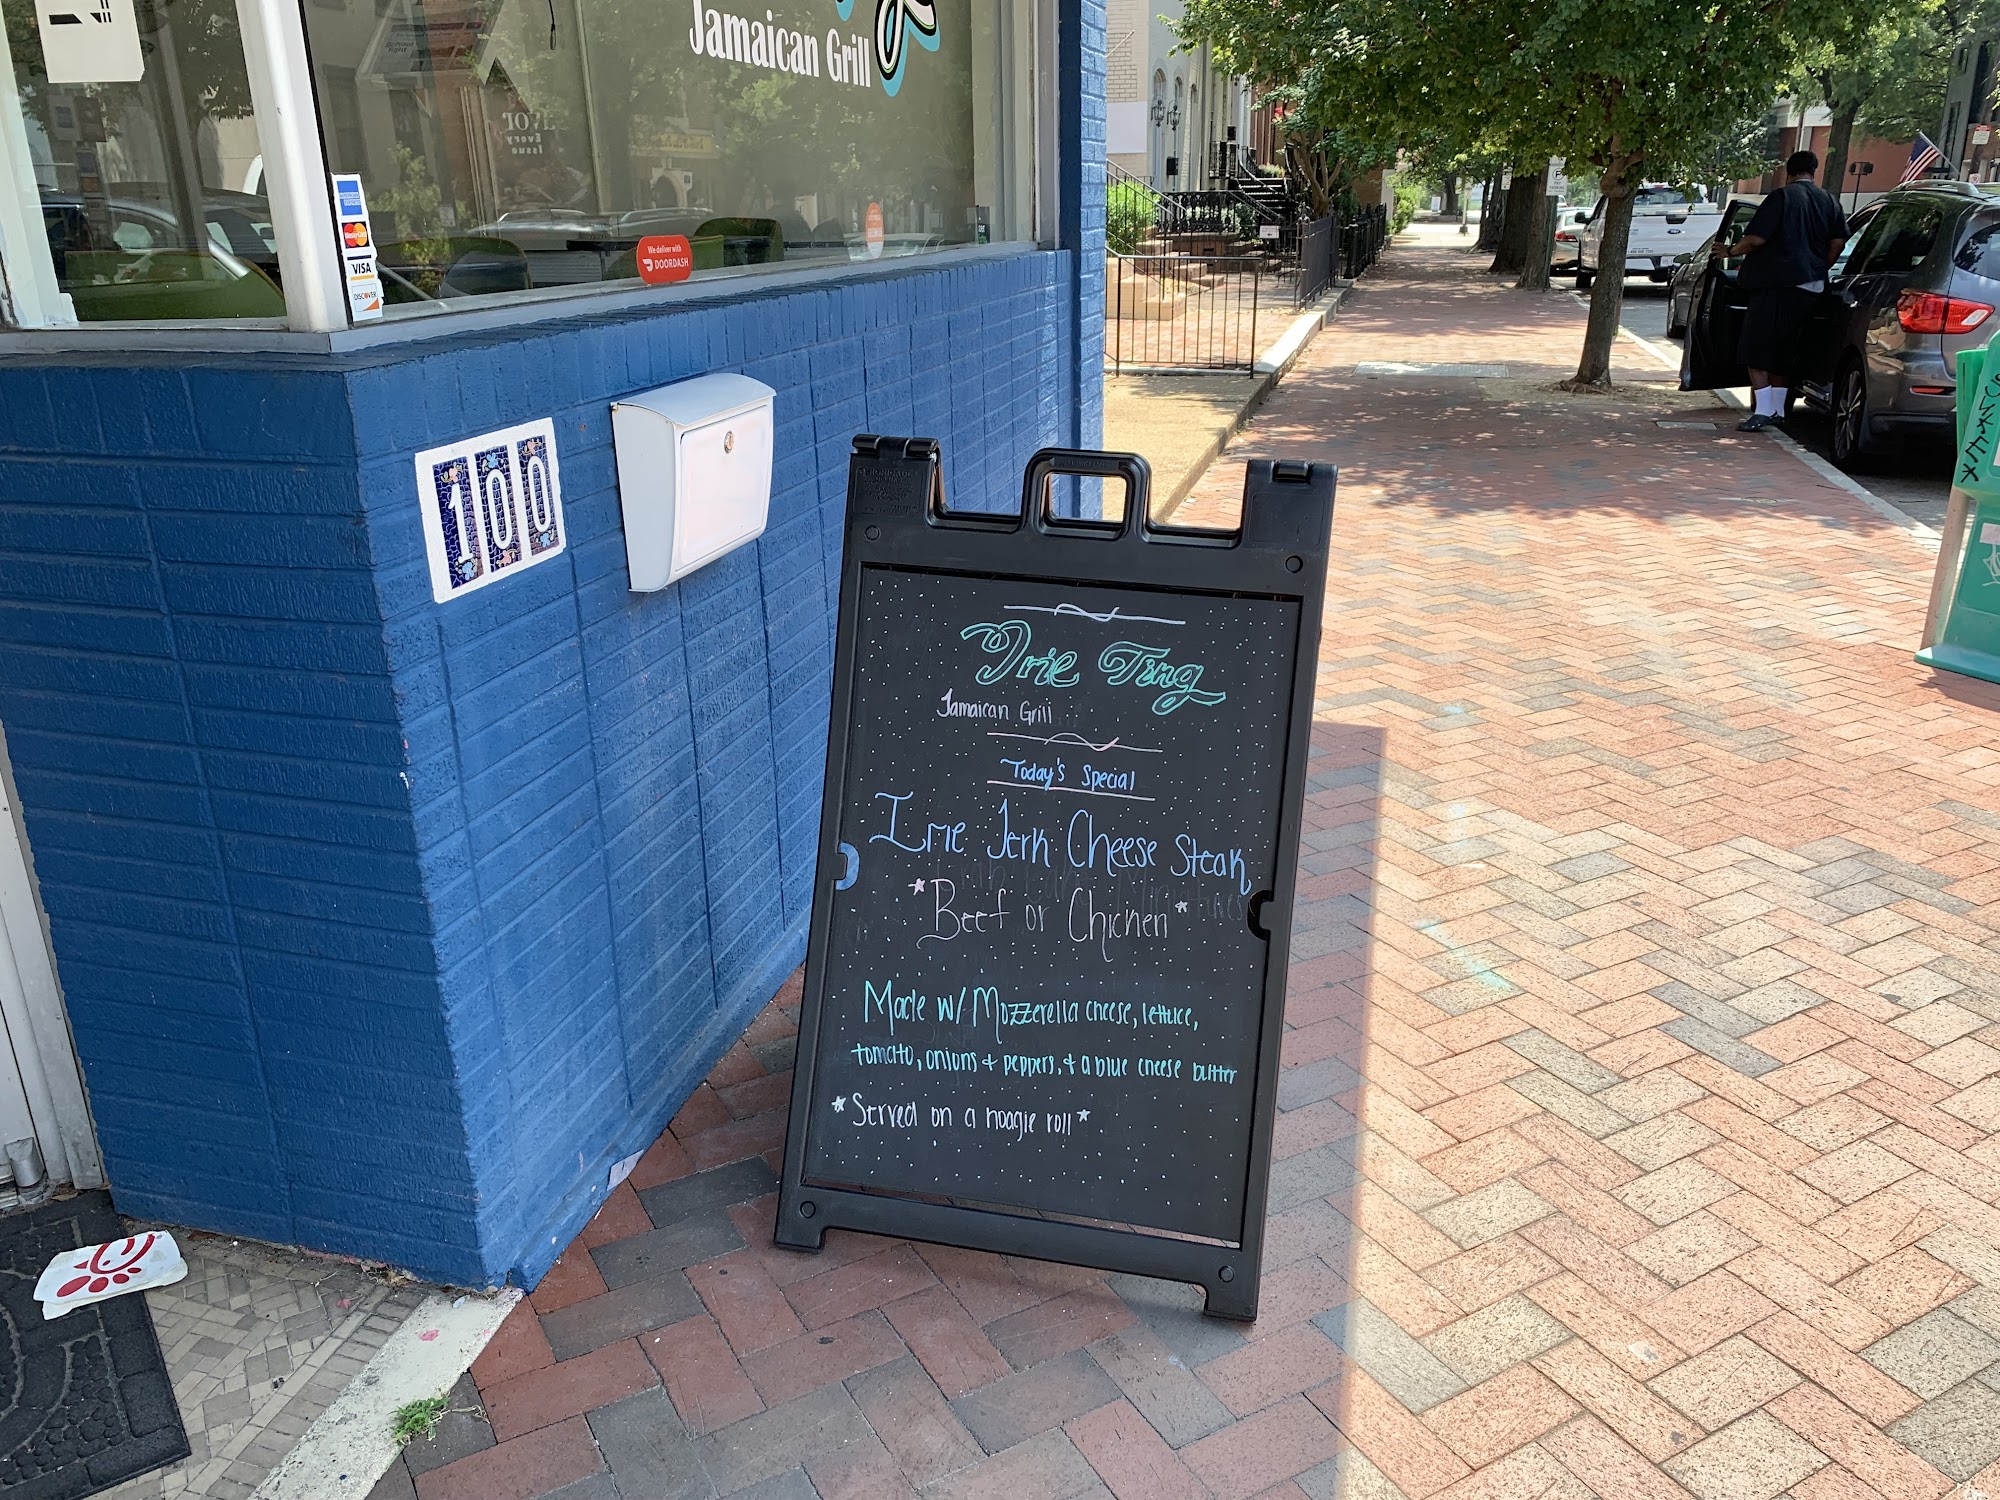 Jamaican Grill
AMERICAN EXPRESS
MasterCard
VISA
DISCOVER
We deliver with
DOORDASH
Every
Issue
100
Irie Ting
Jamaican Grill
Today's Special
Irie Jerk Cheese Steak
*Beef or Chicken*
Made w/ Mozzerella cheese, lettuce,
tomato, onions + peppers, + a blue cheese butter
*Served on a hoagie roll*